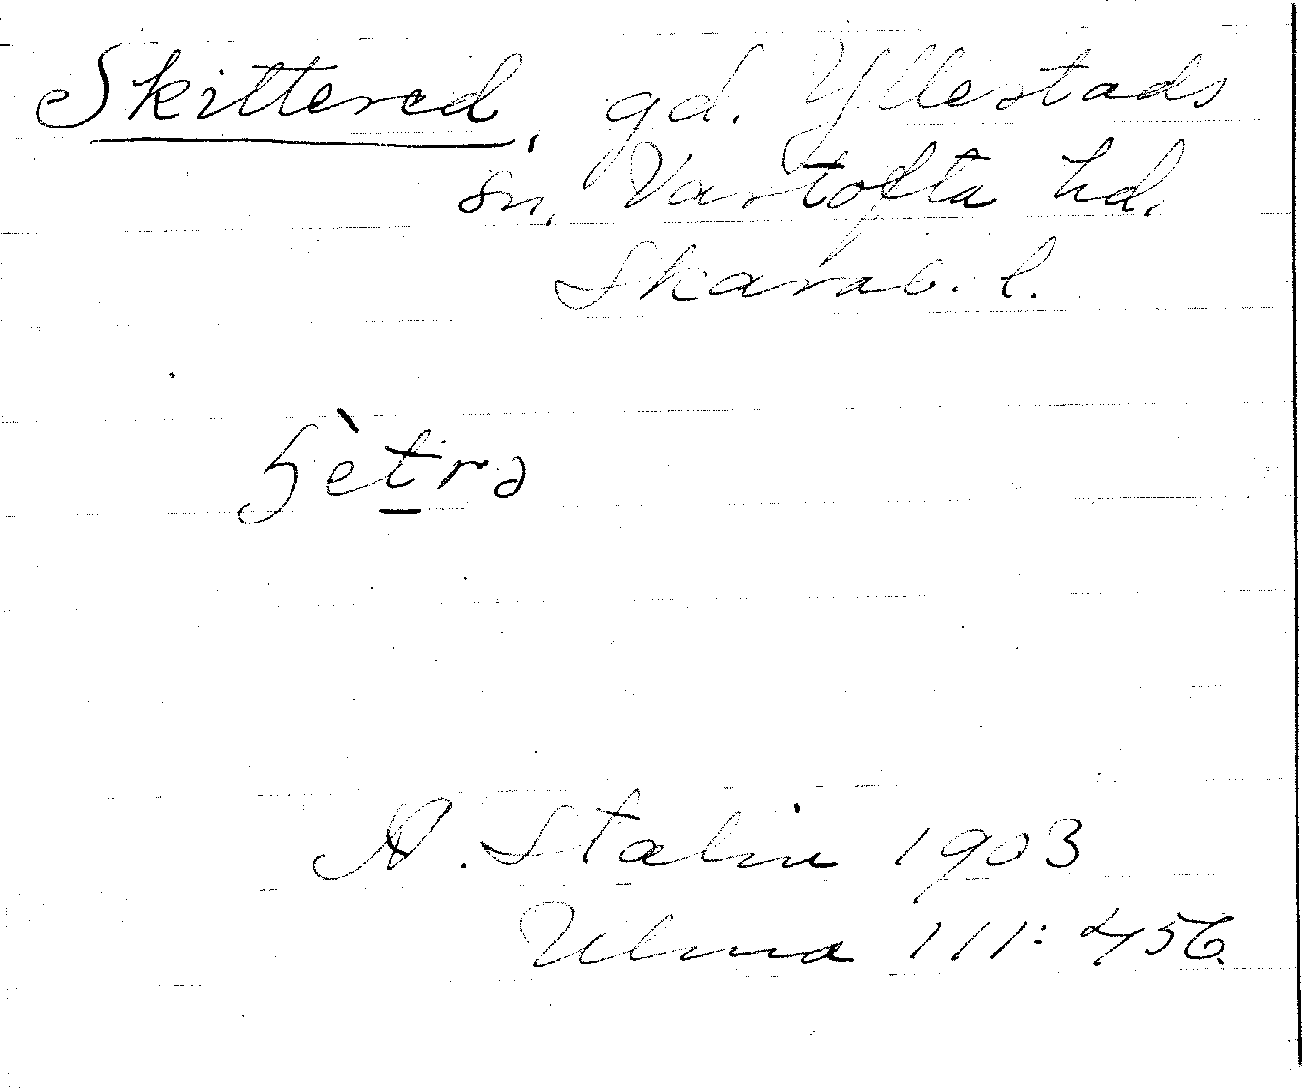 Skittered, gd. Yllestads
sn, Vartofta hd.
Skarab. l.
ɧètrə
A. Stalin 1903
Ulma 111: 456.